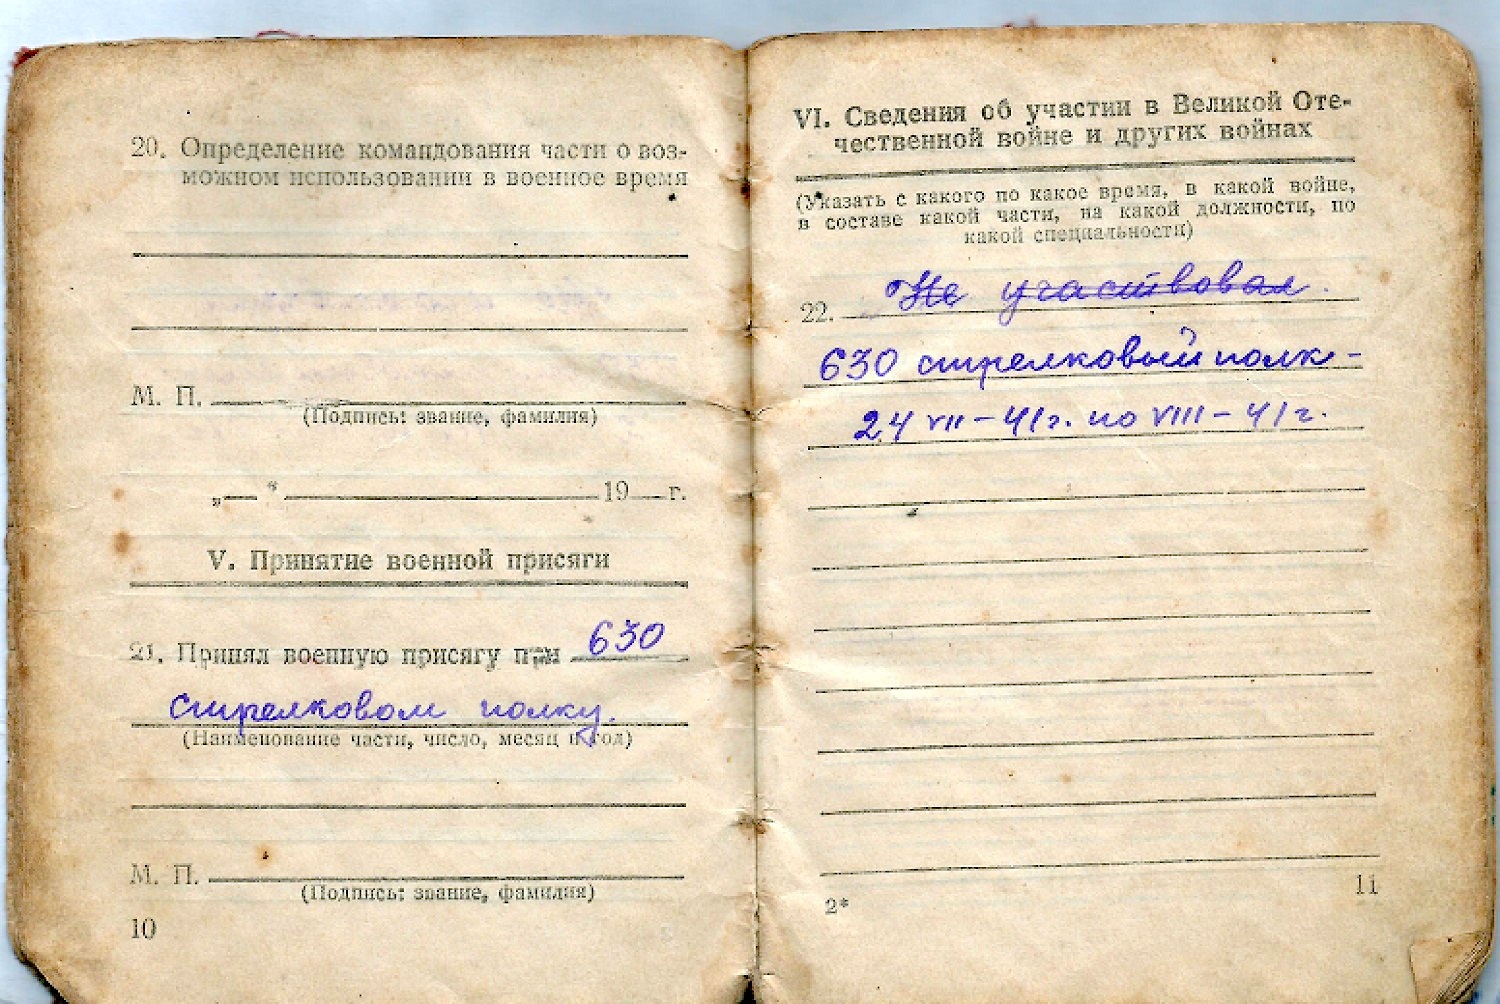 20. Определение командования части о воз-
можном использовании в военное время
М. П.
(Подпись: звание, фамилия)
„ — “ 19 — г.
V. Принятие военной присяги
21. Принял военную присягу при 630
стрелковом полку.
(Наименование части, число, месяц и год)
М. П.
(Подпись: звание, фамилия)
10
VI. Сведения об участии в Великой Оте-
чественной войне и других войнах
(Указать с какого по какое время, в какой войне,
в составе какой части, на какой должности, по
какой специальности)
22. Не участвовал.
630 стрелковый полк -
24 VII - 41 г. по VIII - 41 г.
2*
11